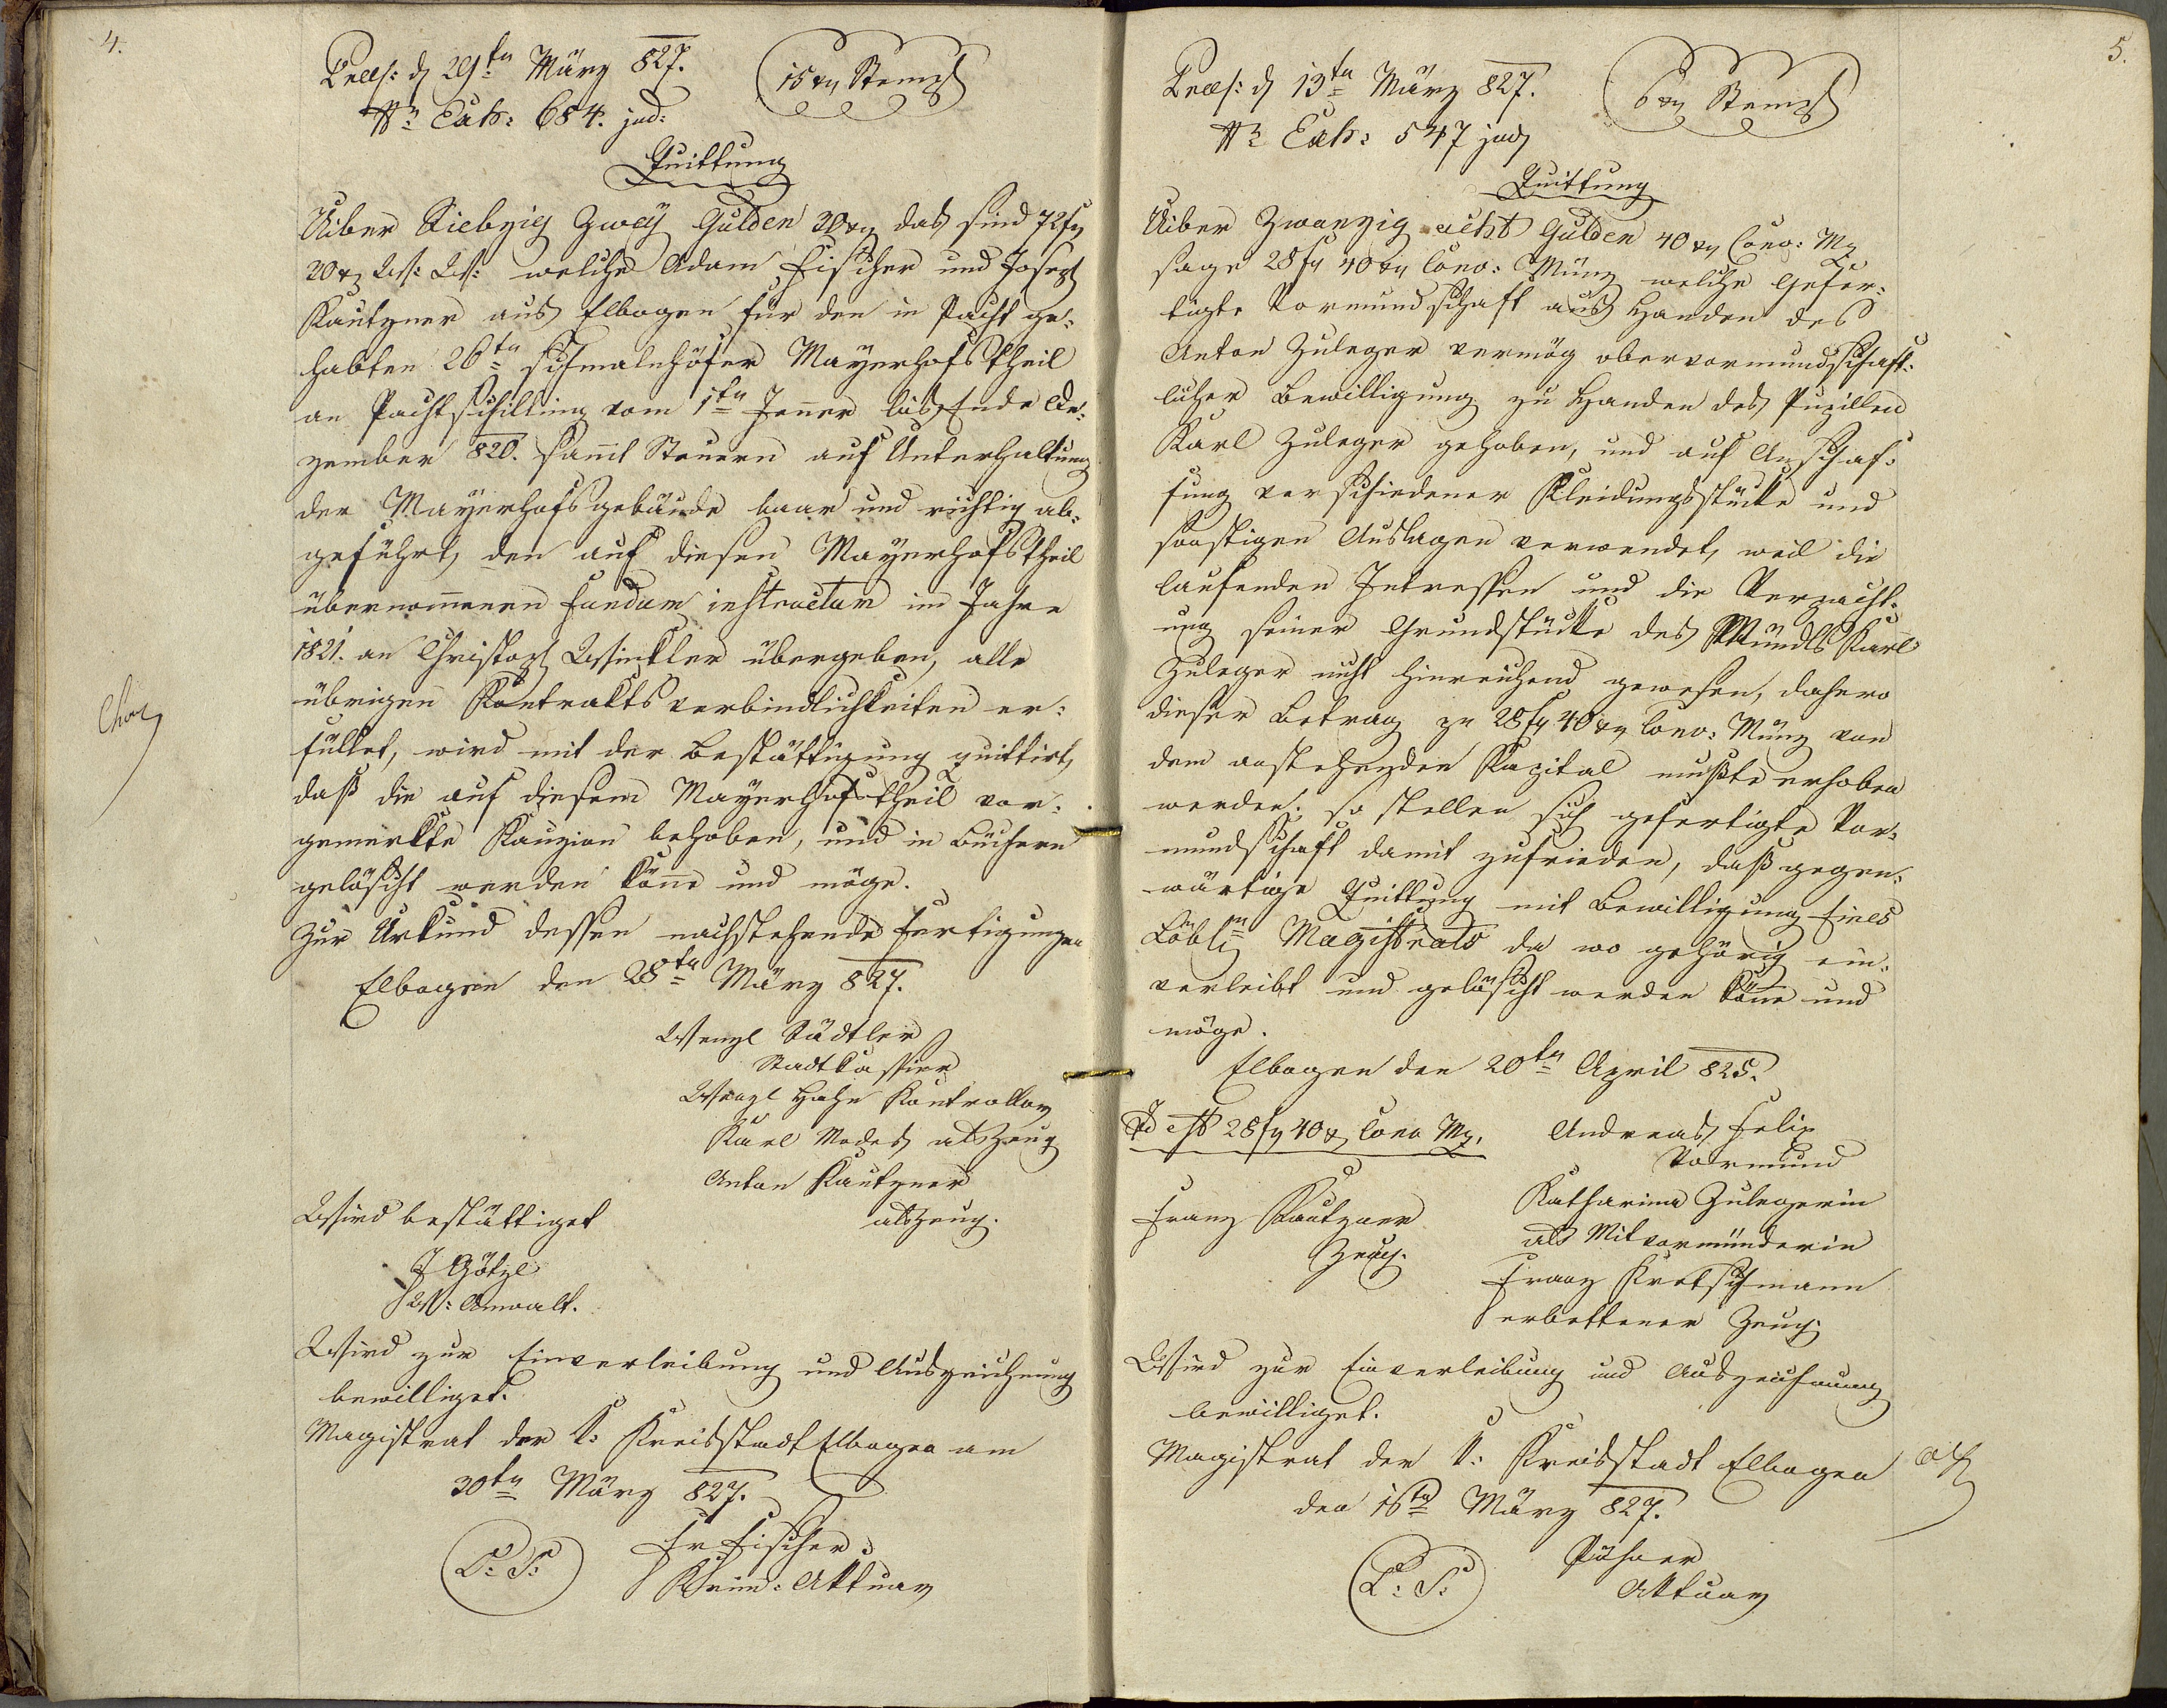 4.
Praes: d 29ten März 827.
15 xr Stempl
Nr Exh: 684. jud:
Quittung
Uiber Siebzig Zwey Gulden 20 xr das sind 72 fr
20 xr W: W: welche Adam Fischer und Joseph
Kautzner aus Elbogen für den in Pacht ge:
habten 26ten schmalnhöfer Mayerhofstheil
an Pachtschilling vom 1ten Jenner bis Ende De:
zember 820. samt Steuern auf Unterhaltung
der Mayerhofsgebäude baar und richtig ab:
geführt, den auf diesen Mayerhofstheil
übernommenen fundum instructum im Jahre
1821. an Christoph Winkler übergeben, alle
übrigen Kontraktsverbindlichkeiten er:
füllet, wird mit der Bestättigung quittirt,
daß die auf diesem Mayerhofstheil vor:
gemerkte Kauzion behoben, und in Büchern
gelöscht werden könne und möge.
Zur Urkund dessen nachstehende Fertigungen
Elbogen den 28ten März 827.
Wenzl Städtler
Stadtkassier
Wenzl Hahn Kontrollor
Karl Modes als Zeug
Anton Kautzner
als Zeug.
Wird bestättiget
J Götzl
W: Anwalt.
Wird zur Einverleibung und Auszeichnung
bewilliget.
Magistrat der k: Kreisstadt Elbogen am
30ten März 827.
L: S:
Fr Fischer
Krim: Aktuar
5.
Praes: d 13ten März 827.
6 xr Stempl
Nr Exh: 547 jud
Quittung
Uiber Zwanzig acht Gulden 40 xr Conv: Mz
sage 28 fr 40 xr Conv: Münz welche Gefer:
tigte Vormundschaft aus Handen des
Anton Zuleger vermög obervormundschaft:
licher Bewilligung zu Handen des Pupillen
Karl Zuleger gehoben, und auf Anschaf:
fung verschiedener Kleidungsstücke und
sonstigen Auslagen verwendet, weil die
laufenden Intressen und die Verpacht:
ung seiner Grundstücke des Mündls Karl
Zuleger nicht hinreichend gewesen, dahero
dieser Betrag zu 28 fr 40 xr Conv: Münz von
dem anstehenden Kapital mußte erhoben
werden; so stellen sich gefertigte Vor:
mundschaft damit zufrieden, daß gegen:
wärtige Quittung mit Bewilligung Eines
Löblen Magistrats da wo gehörig ein:
verleibt und gelöscht werden könne und
möge.
Elbogen den 20ten April 825.
Id est 28 fr 40 x Conv Mz.
Andreas Felix
Vormund
Franz Kautzner
Zeug.
Katharina Zulegerin
als Mitvormünderin
Franz Kretschmann
erbettener Zeug
Wird zur Einverleibung und Auszeichnung
bewilliget.
Magistrat der k: Kreisstadt Elbogen
den 16ten März 827.
L: S:
Aktuar